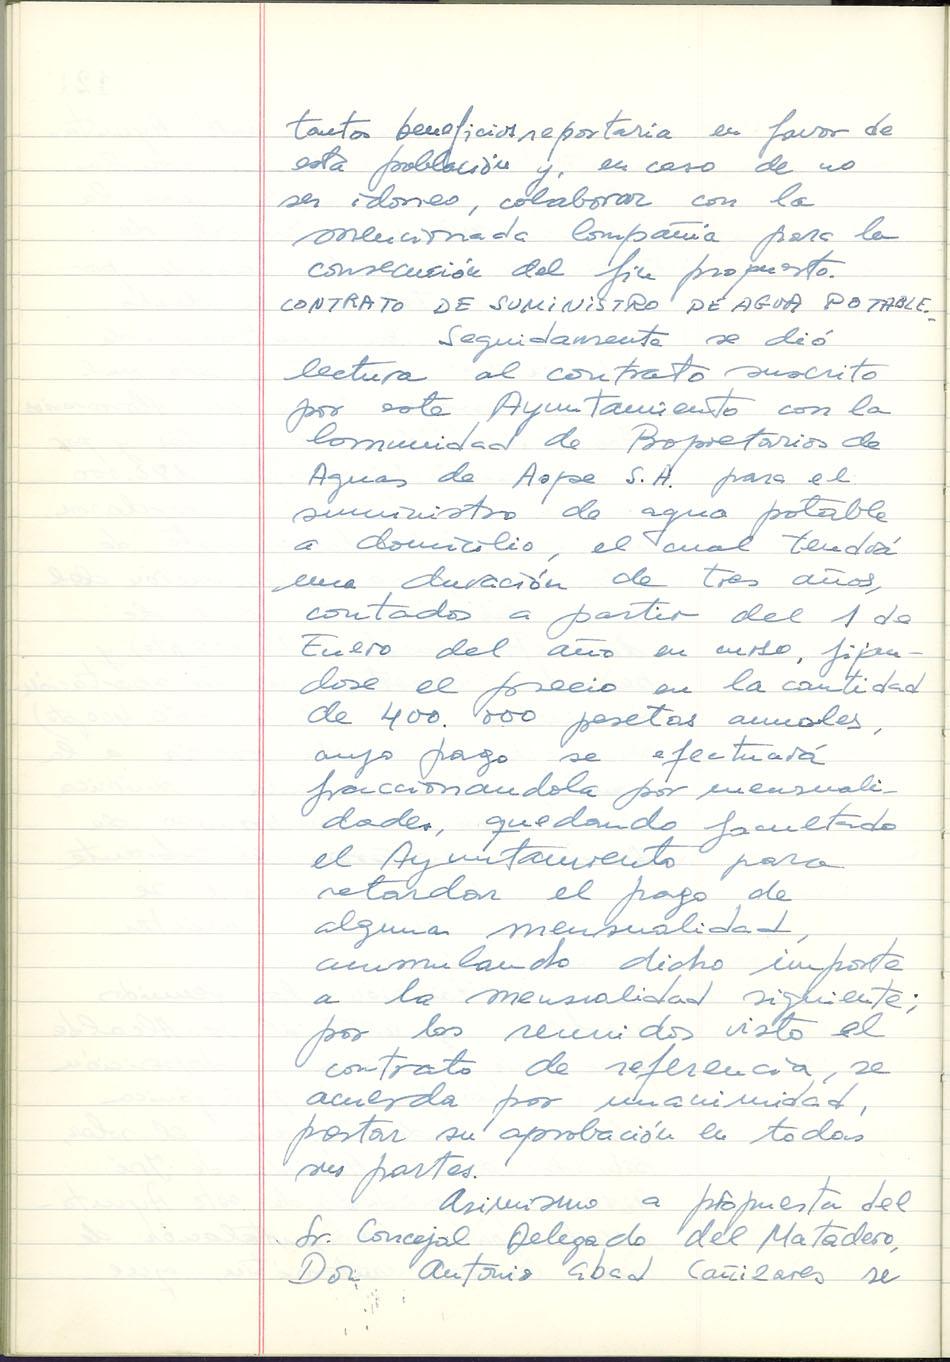 tantos beneficios reportaria en favor de
esta población y, en caso de no
ser idoneo, colaborar con la
mencionada Compañia para la
consecución del fin propuesto.
CONTRATO DE SUMINISTRO DE AGUA POTABLE.-
Seguidamente se dió
lectura al contrato suscrito
por este Ayuntamiento con la
Comunidad de Propietarios de
Aguas de Aspe S.A. para el
suministro de agua potable
a domicilio, el cual tendrá
una duración de tres años,
contados a partir del 1 de
Enero del año en curso, fijan-
dose el precio en la cantidad
de 400.000 pesetas anuales,
cuyo pago se efectuará
fraccionandola por mensuali-
dades, quedando facultado
el Ayuntamiento para
retardar el pago de
alguna mensualidad,
acumulando dicho importe
a la mensualidad siguiente;
por los reunidos visto el
contrato de referencia, se
acuerda por unanimidad,
prestar su aprobación en todas
sus partes.
Asimismo a propuesta del
Sr. Concejal Delegado del Matadero,
Don Antonio Abad Cañizares se